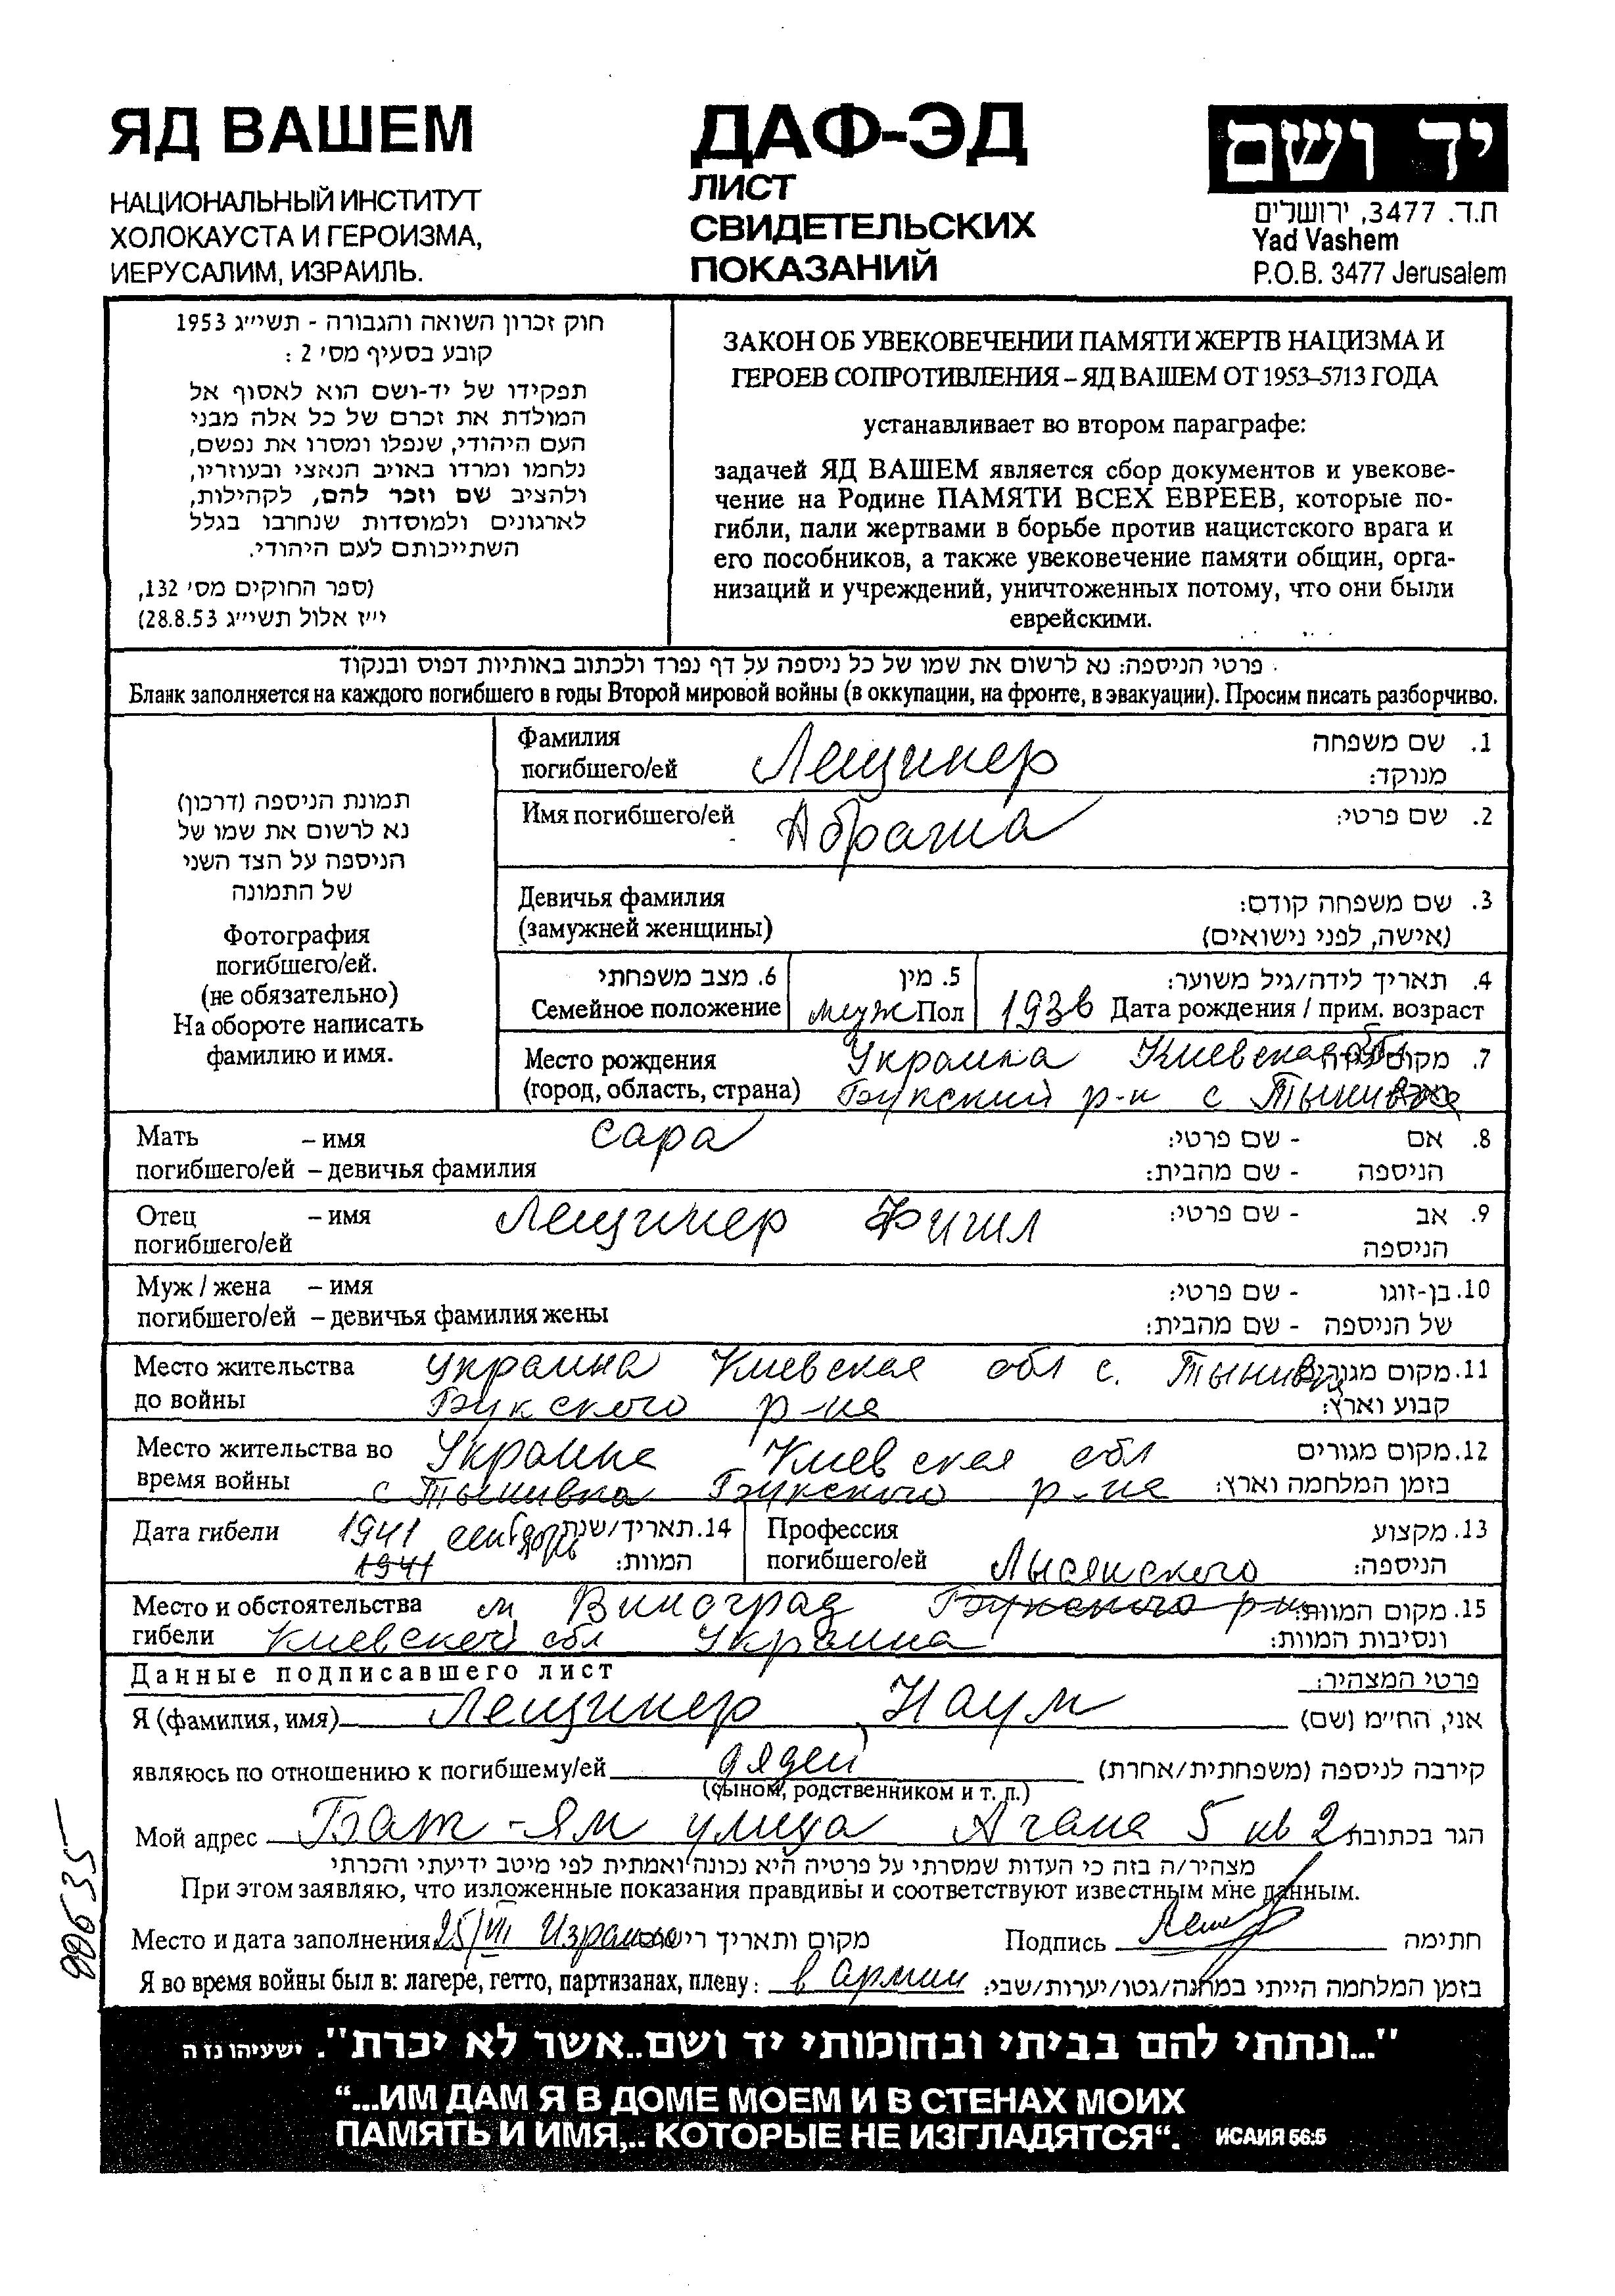 ЯД ВАШЕМ
НАЦИОНАЛЬНЫЙ ИНСТИТУТ
ХОЛОКАУСТА И ГЕРОИЗМА,
ИЕРУСАЛИМ, ИЗРАИЛЬ.
ДАФ-ЭД
ЛИСТ
СВИДЕТЕЛЬСКИХ
ПОКАЗАНИЙ
יד ושם
ת.ד. 3477, ירושלים
Yad Vashem
P.O.B. 3477 Jerusalem
חוק זכרון השואה והגבורה - תשי״ג 1953
קובע בסעיף מס׳ 2 :
תפקידו של יד-ושם הוא לאסוף אל
המולדת את זכרם של כל אלה מבני
העם היהודי, שנפלו ומסרו את נפשם,
נלחמו ומרדו באויב הנאצי ובעוזריו,
ולהציב שם וזכר להם, לקהילות,
לארגונים ולמוסדות שנחרבו בגלל
השתייכותם לעם היהודי.
(ספר החוקים מס׳ 132,
י״ז אלול תשי״ג 28.8.53)
ЗАКОН ОБ УВЕКОВЕЧЕНИИ ПАМЯТИ ЖЕРТВ НАЦИЗМА И
ГЕРОЕВ СОПРОТИВЛЕНИЯ – ЯД ВАШЕМ ОТ 1953–5713 ГОДА
устанавливает во втором параграфе:
задачей ЯД ВАШЕМ является сбор документов и увекове-
чение на Родине ПАМЯТИ ВСЕХ ЕВРЕЕВ, которые по-
гибли, пали жертвами в борьбе против нацистского врага и
его пособников, а также увековечение памяти общин, орга-
низаций и учреждений, уничтоженных потому, что они были
еврейскими.
פרטי הניספה: נא לרשום את שמו של כל ניספה על דף נפרד ולכתוב באותיות דפוס ובנקוד
Бланк заполняется на каждого погибшего в годы Второй мировой войны (в оккупации, на фронте, в эвакуации). Просим писать разборчиво.
תמונת הניספה (דרכון)
נא לרשום את שמו של
הניספה על הצד השני
של התמונה
Фотография
погибшего/ей.
(не обязательно)
На обороте написать
фамилию и имя.
Фамилия Лещинер 1. שם משפחה
погибшего/ей מנוקד:
Имя погибшего/ей Абраша 2. שם פרטי:
Девичья фамилия 3. שם משפחה קודם:
(замужней женщины) (אישה, לפני נישואים)
6. מצב משפחתי 5. מין 4. תאריך לידה/גיל משוער:
Семейное положение муж Пол 193 Дата рождения / прим. возраст
Место рождения Украина Киевская обл 7. מקום
(город, область, страна) Букский р-н с Тынивка
Мать – имя Сара 8. אם - שם פרטי:
погибшего/ей – девичья фамилия הניספה - שם מהבית:
Отец – имя Лещинер Фишл 9. אב - שם פרטי:
погибшего/ей הניספה
Муж / жена – имя 10. בן-זוגו - שם פרטי:
погибшего/ей – девичья фамилия жены של הניספה - שם מהבית:
Место жительства Украина Киевская обл с. Тынивка 11. מקום מגורים
до войны Букского р-на קבוע וארץ:
Место жительства во Украина Киевская обл 12. מקום מגורים
время войны с Тынивка Букского р-на בזמן המלחמה וארץ:
Дата гибели 1941 сентябрь 14. תאריך/שנת Профессия 13. מקצוע
1941 המוות: погибшего/ей Лысянского הניספה:
Место и обстоятельства м Виноград Букского р-н 15. מקום המוות
гибели Киевской обл Украина ונסיבות המוות:
Данные подписавшего лист פרטי המצהיר:
Я (фамилия, имя) Лещинер, Наум אני, הח״מ (שם)
являюсь по отношению к погибшему/ей дядей קירבה לניספה (משפחתית/אחרת)
(сыном, родственником и т. п.)
Мой адрес Бат-Ям улица Агана 5 кв 2 הגר בכתובת
מצהיר/ה בזה כי העדות שמסרתי על פרטיה היא נכונה ואמתית לפי מיטב ידיעתי והכרתי
При этом заявляю, что изложенные показания правдивы и соответствуют известным мне данным.
Место и дата заполнения 25/VII Израиль מקום ותאריך רישום Подпись חתימה
Я во время войны был в: лагере, гетто, партизанах, плену: в Армии בזמן המלחמה הייתי במחנה/גטו/יערות/שבי:
"...ונתתי להם בביתי ובחומותי יד ושם..אשר לא יכרת". ישעיהו נז ה
“...ИМ ДАМ Я В ДОМЕ МОЕМ И В СТЕНАХ МОИХ
ПАМЯТЬ И ИМЯ,.. КОТОРЫЕ НЕ ИЗГЛАДЯТСЯ“. ИСАИЯ 56:5